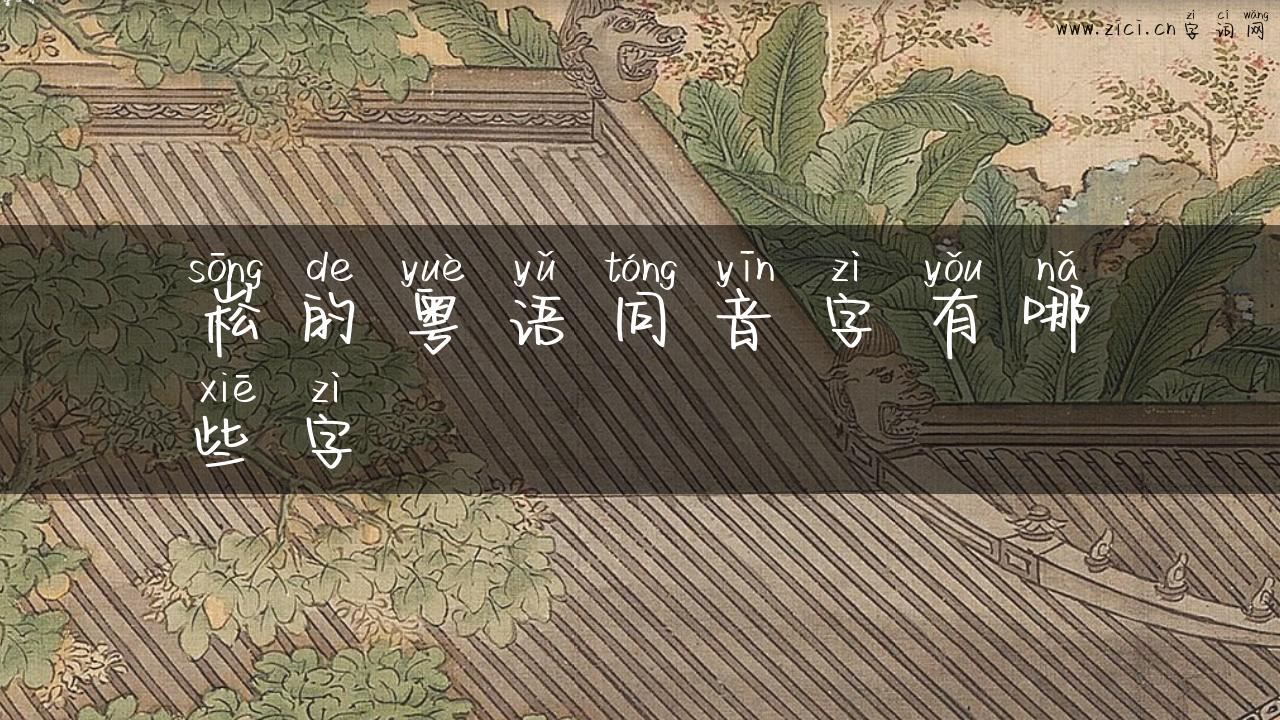 zì cí wǎng
www.zici.cn 字词网
sōng de yuè yǔ tóng yīn zì yǒu nǎ
崧的粤语同音字有哪
xiē zì
些字